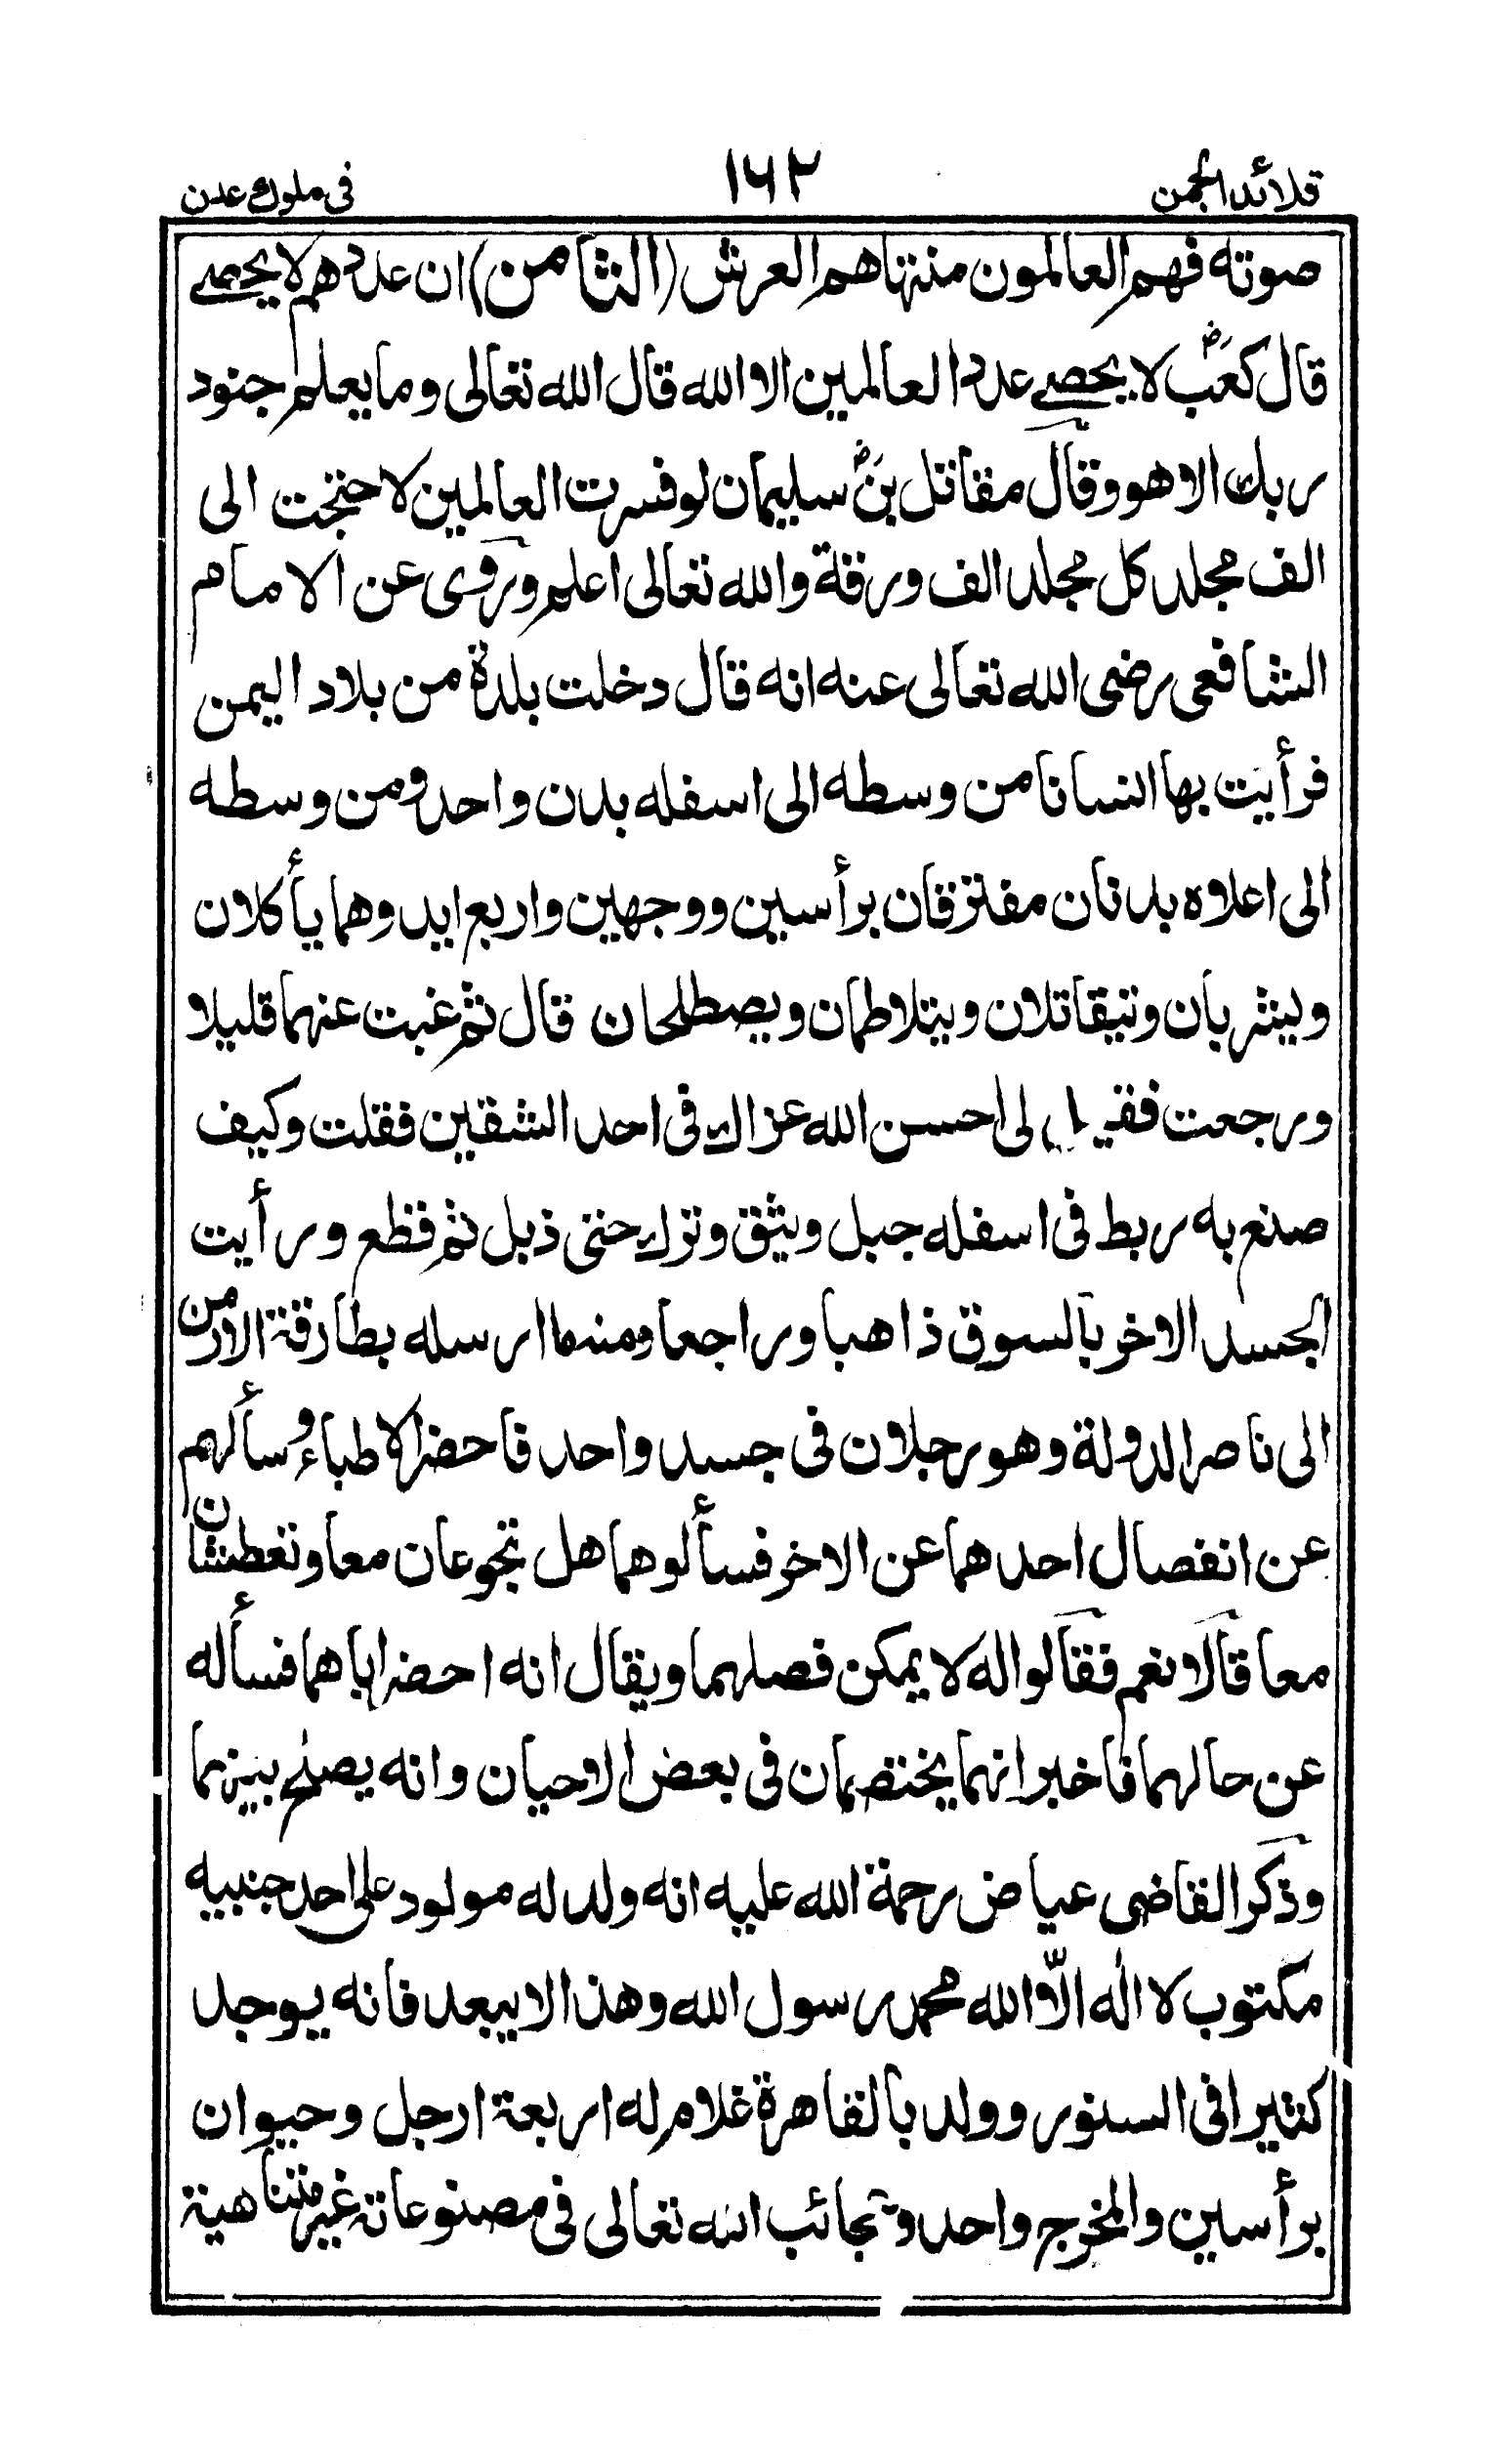 قلائد الجمن
١٦٢
في ملوك عدن
صوته فهم العالمون منتهاهم العرش (الثامن) ان عددهم لا يحصى
قال كعبؓ لا يحصى عدد العالمين الا الله قال الله تعالى وما يعلم جنود
ربك الا هو وقال مقاتل بنؓ سليمان لو فسرت العالمين لاحتجت الى
الف مجلد كل مجلد الف ورقة والله تعالى اعلم وروى عن الامام
الشافعى رضى الله تعالى عنه انه قال دخلت بلدة من بلاد اليمن
فرأيت بها انسانا من وسطه الى اسفله بدن واحد ومن وسطه
الى اعلاه بدنان مفترقان برأسين ووجهين واربع ايد وهما يأكلان
ويشربان وتيقاتلان ويتلاطمان ويصطلحان قال ثم غبت عنهما قليلا
ورجعت فقيل لى احسن الله عزاك فى احد الشقين فقلت وكيف
صنع به ربط فى اسفله حبل وثيق وترك حتى ذبل ثم قطع ورأيت
الجسد الاخر بالسوق ذاهبا وراجعا ومنه ما ارسله بطارقة الارمن
الى ناصر الدولة وهو رجلان فى جسد واحد فاحضر الاطباء وسألهم
عن انفصال احدهما عن الاخر فسألوهما هل تجوعان معا وتعطشان
معا قالا نعم فقالوا له لا يمكن فصلهما ويقال انه احضر اباهما فسأله
عن حالهما فاخبر انهما يختصمان فى بعض الاحيان وانه يصلح بينهما
وذكر القاضى عياض رحمة الله عليه انه ولد له مولود على احد جنبيه
مكتوب لا اله الّا الله محمد رسول الله وهذا لا يبعد فانه يوجد
كثيرا فى السنور وولد بالقاهرة غلام له اربعة ارجل وحيوان
برأسين والمخرج واحد وعجائب الله تعالى فى مصنوعاته غير متناهية